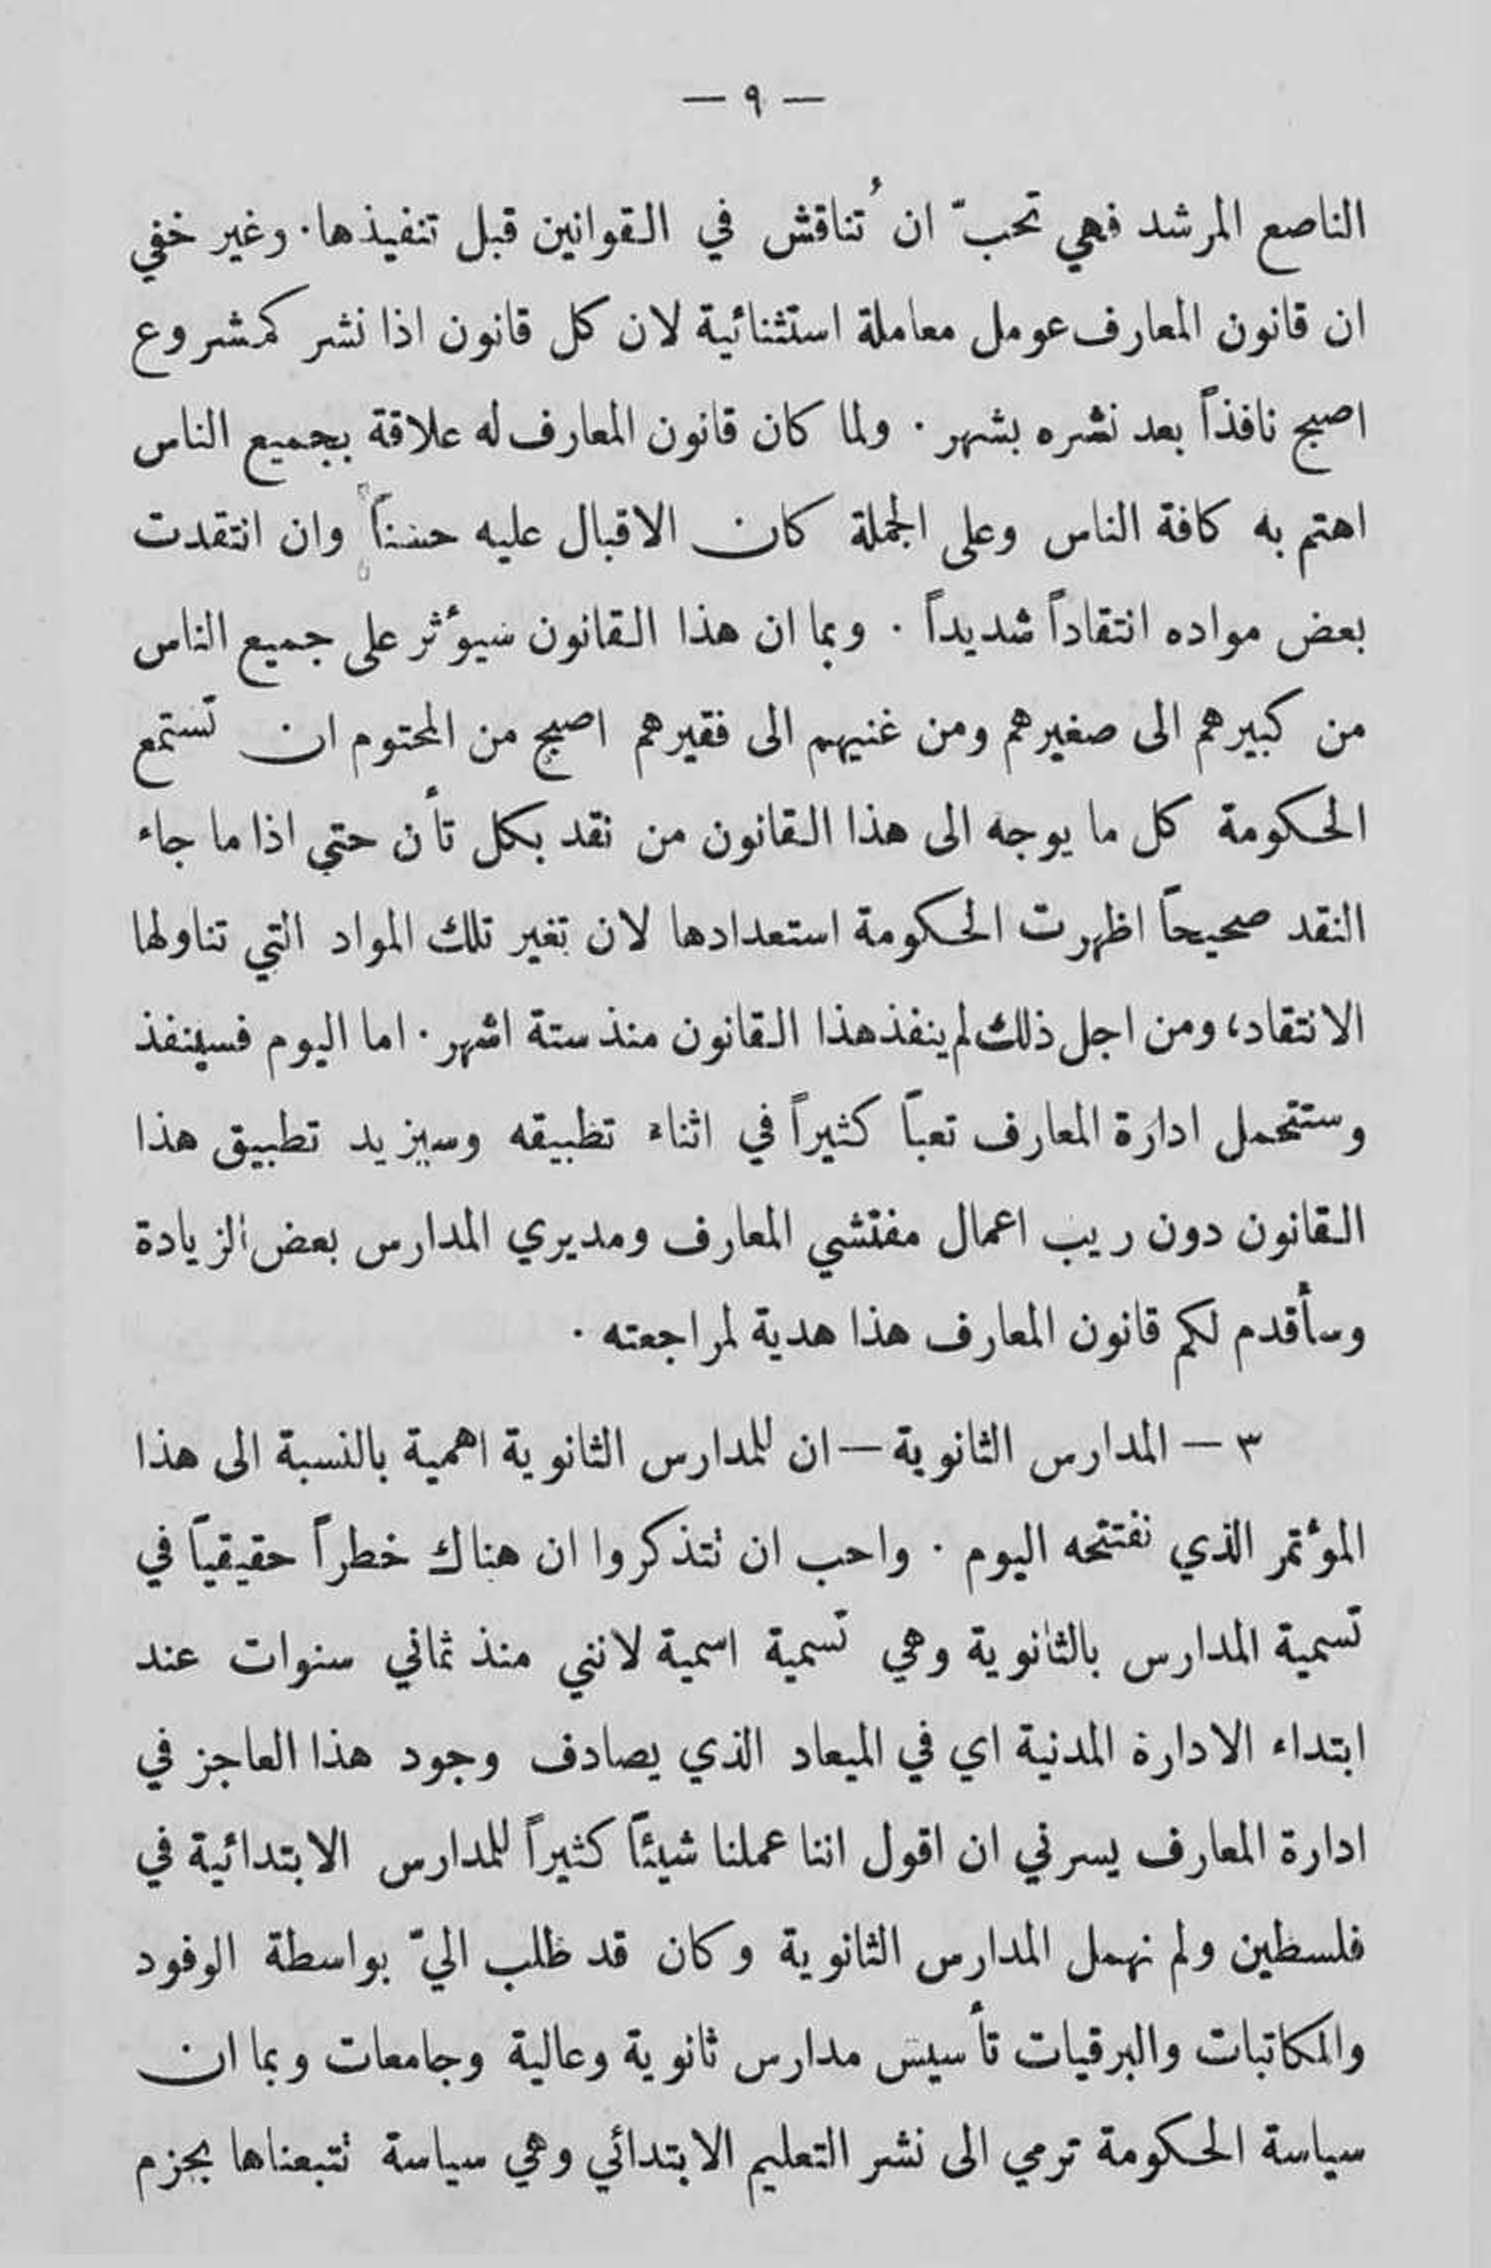 — ٩ —
الناصع المرشد فهي تحبّ ان تُناقش في القوانين قبل تنفيذها. وغير خفي
ان قانون المعارف عومل معاملة استثنائية لان كل قانون اذا نشر كمشروع
اصبح نافذاً بعد نشره بشهر. ولما كان قانون المعارف له علاقة بجميع الناس
اهتم به كافة الناس وعلى الجملة كان الاقبال عليه حسناً وان انتقدت
بعض مواده انتقاداً شديداً. وبما ان هذا القانون سيؤثر على جميع الناس
من كبيرهم الى صغيرهم ومن غنيهم الى فقيرهم اصبح من المحتوم ان تستمع
الحكومة كل ما يوجه الى هذا القانون من نقد بكل تأن حتى اذا ما جاء
النقد صحيحاً اظهرت الحكومة استعدادها لان تغير تلك المواد التي تناولها
الانتقاد، ومن اجل ذلك لم ينفذ هذا القانون منذ ستة اشهر. اما اليوم فسينفذ
وستتحمل ادارة المعارف تعباً كثيراً في اثناء تطبيقه وسيزيد تطبيق هذا
القانون دون ريب اعمال مفتشي المعارف ومديري المدارس بعض الزيادة
وسأقدم لكم قانون المعارف هذا هدية لمراجعته.
٣ — المدارس الثانوية — ان للمدارس الثانوية اهمية بالنسبة الى هذا
المؤتمر الذي نفتتحه اليوم. واحب ان تتذكروا ان هناك خطراً حقيقياً في
تسمية المدارس بالثانوية وهي تسمية اسمية لانني منذ ثماني سنوات عند
ابتداء الادارة المدنية اي في الميعاد الذي يصادف وجود هذا العاجز في
ادارة المعارف يسرني ان اقول اننا عملنا شيئاً كثيراً للمدارس الابتدائية في
فلسطين ولم نهمل المدارس الثانوية وكان قد طلب اليّ بواسطة الوفود
والمكاتبات والبرقيات تأسيس مدارس ثانوية وعالية وجامعات وبما ان
سياسة الحكومة ترمي الى نشر التعليم الابتدائي وهي سياسة نتبعناها بجزم